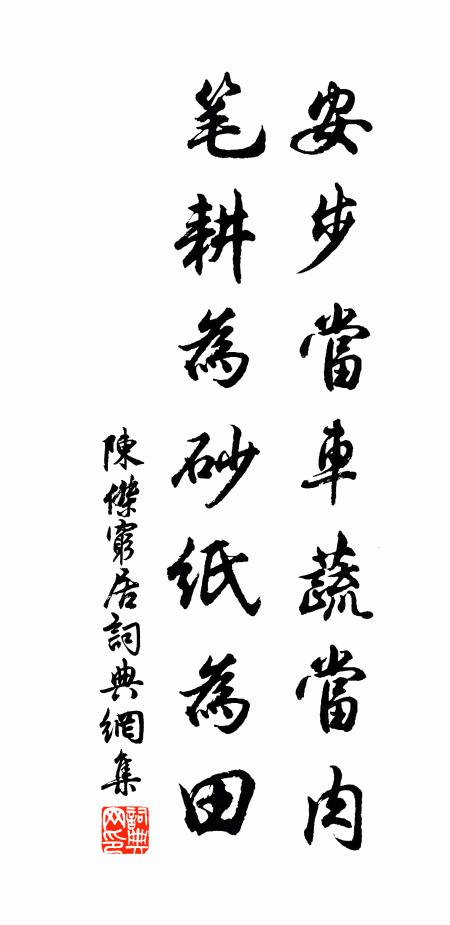 安步當車蔬當肉
笔耕為砂紙為田
陳傑窮居詞典網集
詞典网印